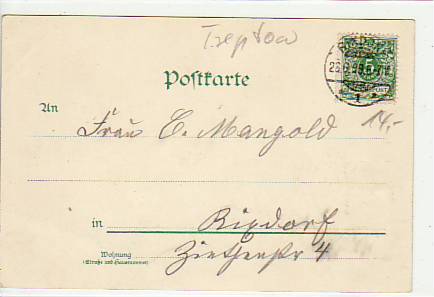 Treptow
Postkarte
An
Frau E. Mangold
14,-
in Rixdorf
Wohnung
(Straße und Hausnummer)
Ziethenstr 4